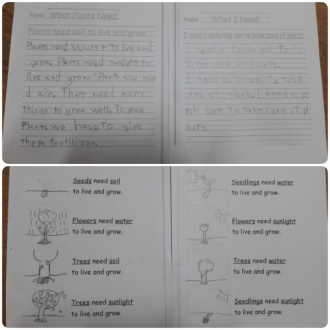 Topic What Plants Need
Plants need soil to live and grow.
Plants need water to live and
grow. Plants need sunlight to
live and grow. Plants also nee
d air. They need many
things to grow well. To grow
Plants, we have to give
them fertilizer.
Topic What I Need
I need a watering can to take care of plants.
I need a
to take care of plants.
I need a to take
care of plants. I need a
to take care of pl
ants.
Seeds need soil
to live and grow.
Flowers need water
to live and grow.
Trees need soil
to live and grow.
Trees need sunlight
to live and grow.
Seedlings need water
to live and grow.
Flowers need sunlight
to live and grow.
Trees need water
to live and grow.
Seedlings need sunlight
to live and grow.